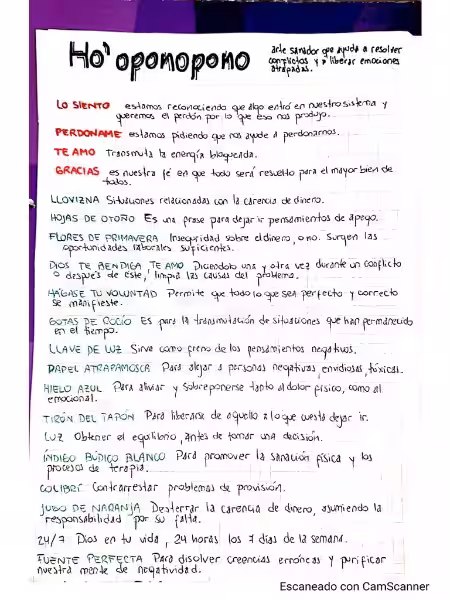 Ho'oponopono
arte sanador que ayuda a resolver
conflictos y a liberar emociones
atrapadas.
LO SIENTO estamos reconociendo que algo entró en nuestro sistema y
queremos el perdón por lo que eso nos produjo.
PERDONAME estamos pidiendo que nos ayude a perdonarnos.
TE AMO Transmuta la energía bloqueada.
GRACIAS es nuestra fé en que todo será resuelto para el mayor bien de
todos.
LLOVIZNA Situaciones relacionadas con la carencia de dinero.
HOJAS DE OTOÑO Es una frase para dejar ir pensamientos de apego.
FLORES DE PRIMAVERA Inseguridad sobre el dinero, o no. Surgen las
oportunidades laborales suficientes.
DIOS TE BENDIGA, TE AMO Diciendolo una y otra vez durante un conflicto
o después de éste, limpia las causas del problema.
HÁGASE TU VOLUNTAD Permite que todo lo que sea perfecto y correcto
se manifieste.
GOTAS DE ROCÍO Es para la transmutación de situaciones que han permanecido
en el tiempo.
LLAVE DE LUZ Sirve como freno de los pensamientos negativos.
PAPEL ATRAPAMOSCA Para alejar a personas negativas, envidiosas, tóxicas.
HIELO AZUL Para aliviar y sobreponerse tanto al dolor físico, como al
emocional.
TIRÓN DEL TAPÓN Para liberarse de aquello a lo que cuesta dejar ir.
LUZ Obtener el equilibrio, antes de tomar una decisión.
ÍNDIGO BÚDICO BLANCO Para promover la sanación física y los
procesos de terapia.
COLIBRÍ Contrarrestar problemas de provisión.
JUGO DE NARANJA Desterrar la carencia de dinero, asumiendo la
responsabilidad por su falta.
24/7 Dios en tu vida, 24 horas los 7 días de la semana.
FUENTE PERFECTA Para disolver creencias erróneas y purificar
nuestra mente de negatividad.
Escaneado con CamScanner